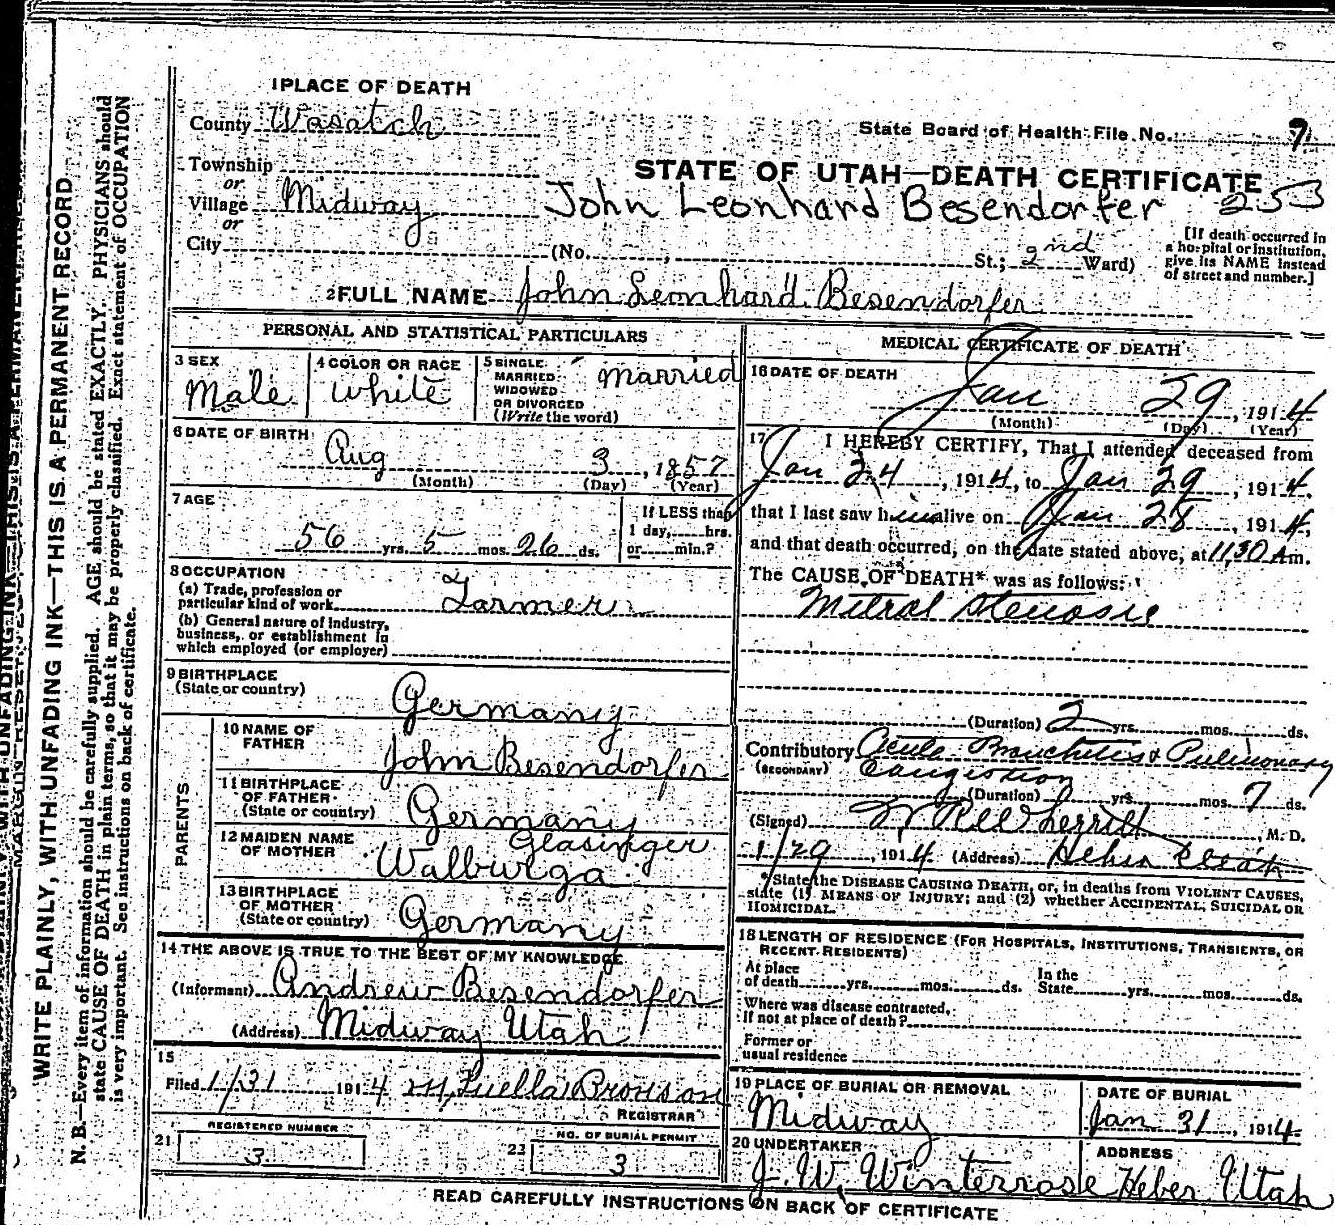 1 PLACE OF DEATH
County Wasatch
State Board of Health File No. 7
Township
or
Village Midway
or
City
STATE OF UTAH—DEATH CERTIFICATE
John Leonhard Besendorfer 253
(No. , St.; 2nd Ward)
[If death occurred in
a hospital or institution,
give its NAME instead
of street and number.]
2 FULL NAME John Leonhard Besendorfer
PERSONAL AND STATISTICAL PARTICULARS
3 SEX
Male
4 COLOR OR RACE
White
5 SINGLE.
MARRIED
WIDOWED
OR DIVORCED
(Write the word)
married
6 DATE OF BIRTH
Aug 3, 1857
(Month) (Day) (Year)
7 AGE
56 yrs. 5 mos. 26 ds.
If LESS than
1 day, hrs.
or min.?
8 OCCUPATION
(a) Trade, profession or
particular kind of work Farmer
(b) General nature of Industry,
business, or establishment in
which employed (or employer)
9 BIRTHPLACE
(State or country)
Germany
PARENTS
10 NAME OF
FATHER
John Besendorfer
11 BIRTHPLACE
OF FATHER
(State or country)
Germany
12 MAIDEN NAME
OF MOTHER
Walburga Glasinger
13 BIRTHPLACE
OF MOTHER
(State or country)
Germany
14 THE ABOVE IS TRUE TO THE BEST OF MY KNOWLEDGE
(Informant) Andrew Besendorfer
(Address) Midway Utah
15
Filed 1/31 1914 Luella Bronson
REGISTRAR
REGISTERED NUMBER
21 3
NO. OF BURIAL PERMIT
23 3
MEDICAL CERTIFICATE OF DEATH
16 DATE OF DEATH
Jan 29, 1914
(Month) (Day) (Year)
17 I HEREBY CERTIFY, That I attended deceased from
Jan 24, 1914, to Jan 29, 1914,
that I last saw him alive on Jan 28, 1914,
and that death occurred, on the date stated above, at 11,30 Am.
The CAUSE OF DEATH* was as follows:
Mitral Stenosis
(Duration) 2 yrs. mos. ds.
Contributory Acute Bronchitis & Pulmonary
(SECONDARY) Congestion
(Duration) yrs. mos. 7 ds.
(Signed) M. D.
1/29, 1914 (Address) Heber Utah
*State the DISEASE CAUSING DEATH, or, in deaths from VIOLENT CAUSES,
state (1) MEANS OF INJURY; and (2) whether ACCIDENTAL, SUICIDAL OR
HOMICIDAL.
18 LENGTH OF RESIDENCE (FOR HOSPITALS, INSTITUTIONS, TRANSIENTS, OR
RECENT RESIDENTS)
At place
of death yrs. mos. ds.
In the
State yrs. mos. ds.
Where was disease contracted,
If not at place of death?
Former or
usual residence
19 PLACE OF BURIAL OR REMOVAL
Midway
DATE OF BURIAL
Jan 31, 1914
20 UNDERTAKER
J. W. Winterrose
ADDRESS
Heber Utah
READ CAREFULLY INSTRUCTIONS ON BACK OF CERTIFICATE
WRITE PLAINLY, WITH UNFADING INK—THIS IS A PERMANENT RECORD
N. B.—Every item of information should be carefully supplied. AGE should be stated EXACTLY. PHYSICIANS should
state CAUSE OF DEATH in plain terms, so that it may be properly classified. Exact statement of OCCUPATION
is very important. See instructions on back of certificate.